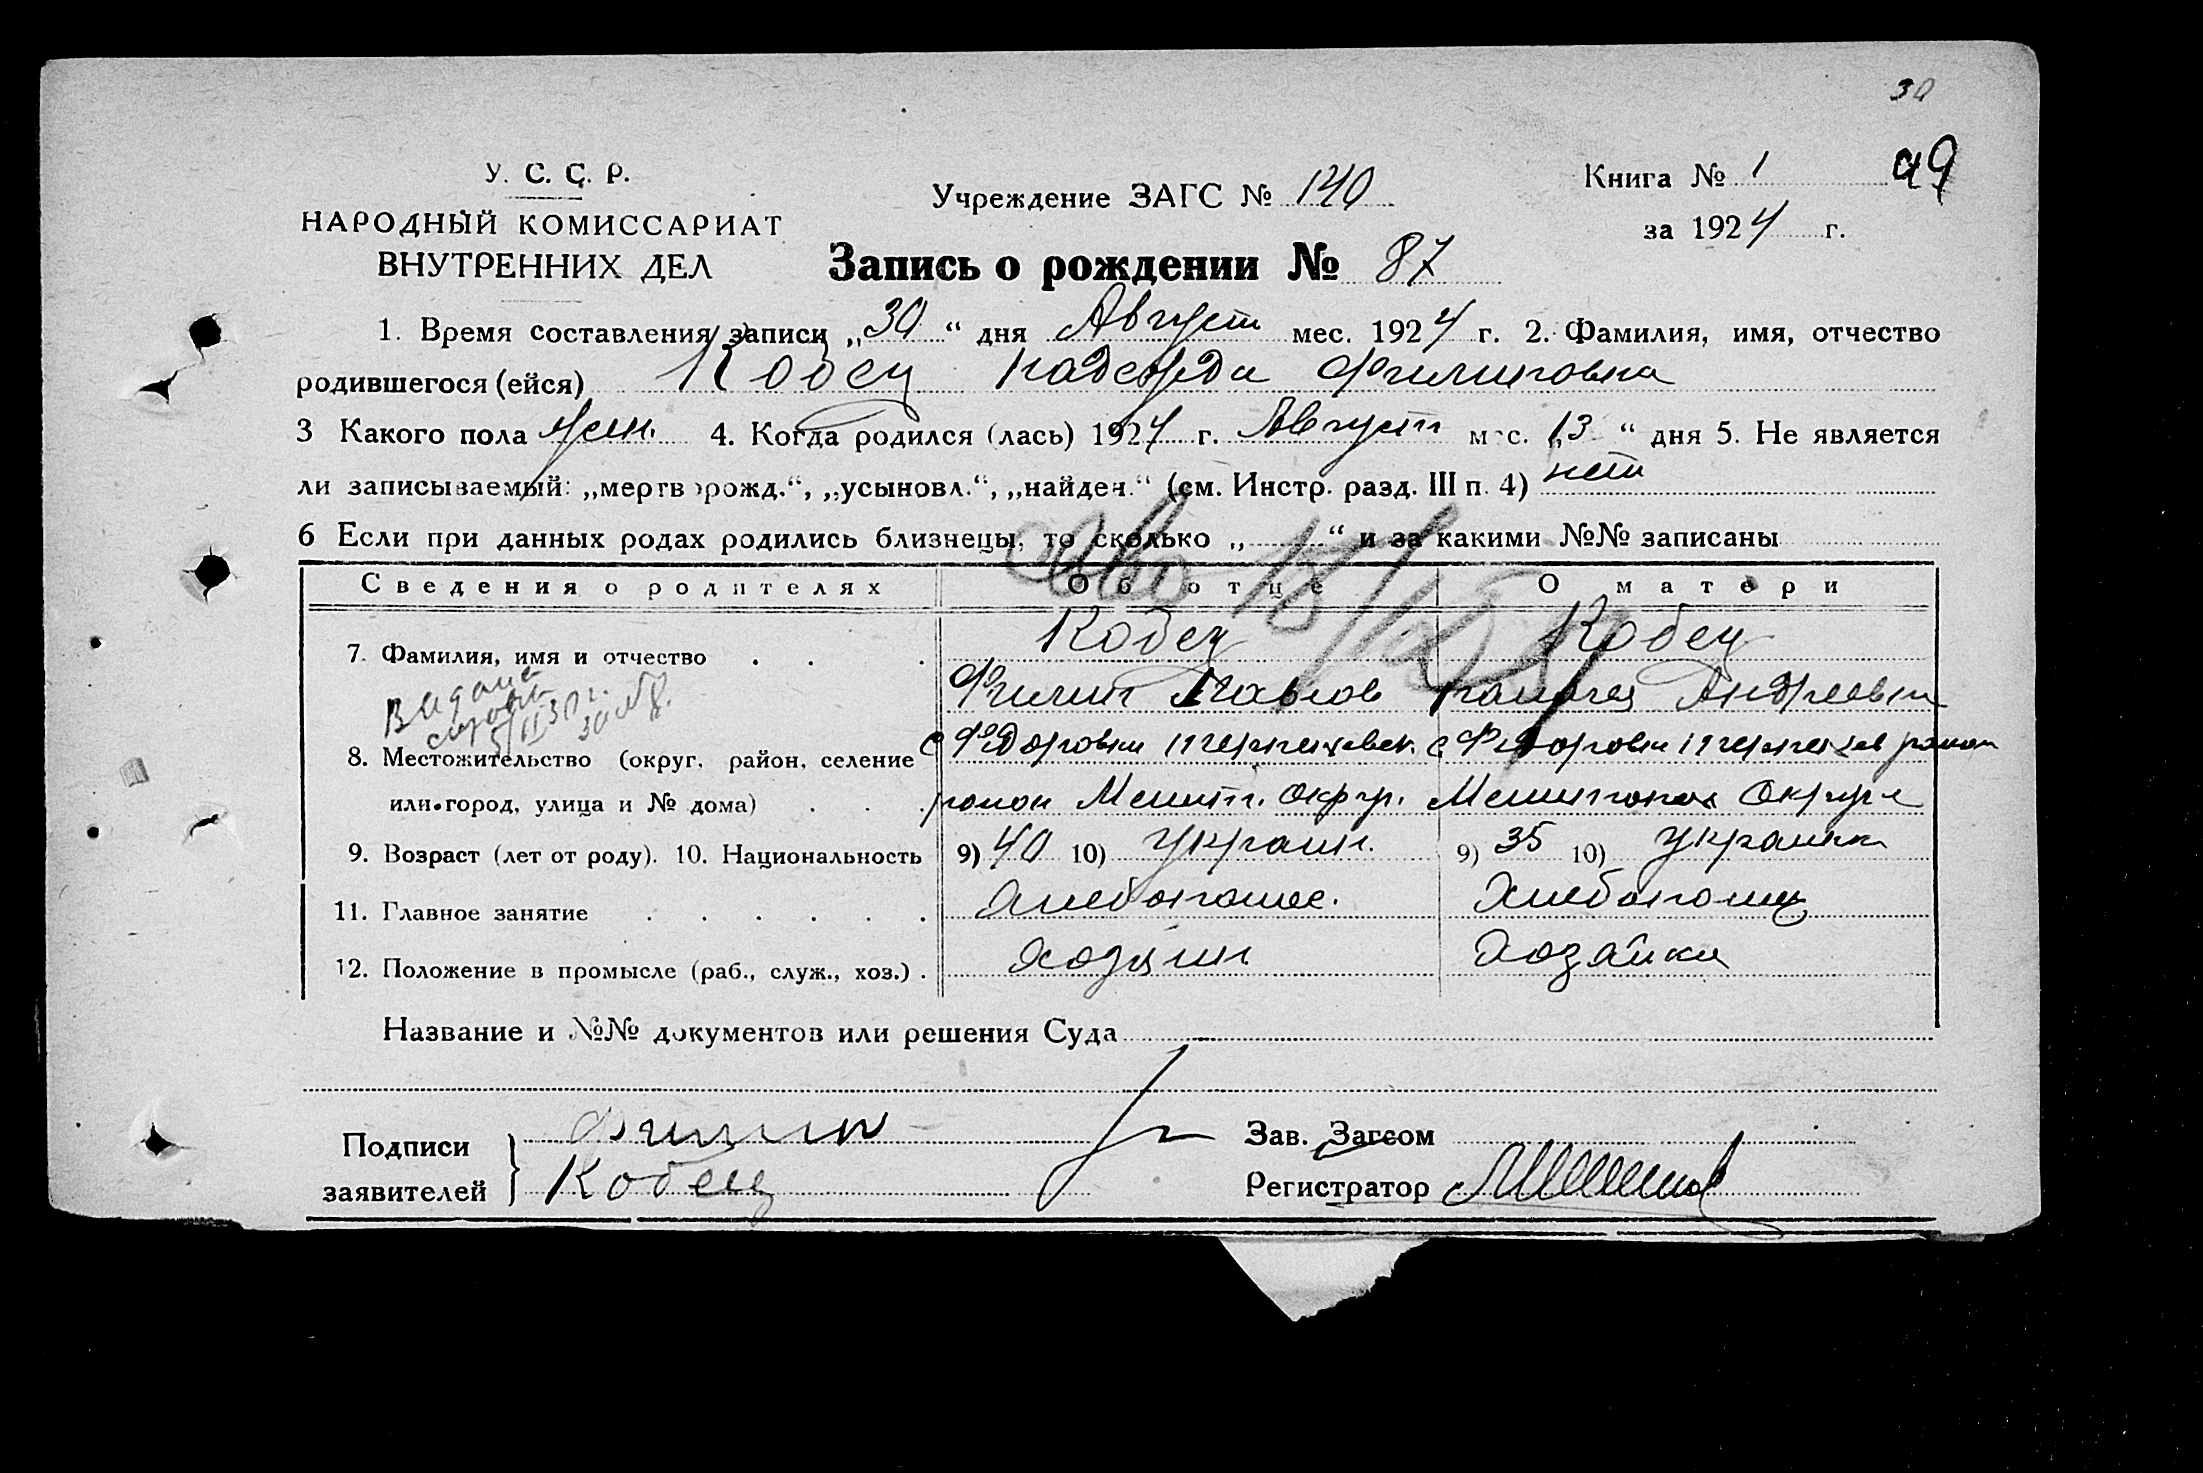 30
У. С. С. Р.
НАРОДНЫЙ КОМИССАРИАТ
ВНУТРЕННИХ ДЕЛ
Учреждение ЗАГС № 140
Книга № 1 49
за 1924 г.
Запись о рождении № 87
1. Время составления записи „30“ дня Август мес. 1924 г. 2. Фамилия, имя, отчество
родившегося (ейся) Кобец Надежда Филиповна
3 Какого пола жен. 4. Когда родился (лась) 1924 г. Август мес. „13“ дня 5. Не является
ли записываемый: „мертворожд.“, „усыновл.“, „найден.“ (см. Инстр. разд. III п. 4) нет
6 Если при данных родах родились близнецы, то сколько „ “ и за какими №№ записаны
Сведения о родителях Об отце О матери
7. Фамилия, имя и отчество Кобец Кобец
Филип Павлов Андреевна
Видана
5/II 30 г.
8. Местожительство (округ, район, селение
с Федоровки с Федоровки район
или город, улица и № дома) район Мелит. Окр. Мелитопол Округа
9. Возраст (лет от роду). 10. Национальность 9) 40 10) Украин. 9) 35 10) Украинка
11. Главное занятие Хлебопашес. Хлебопашец
12. Положение в промысле (раб., служ., хоз.) Хозяин Хозайка
Название и №№ документов или решения Суда
Подписи
заявителей
Филип
Кобец
Зав. Загсом
Регистратор